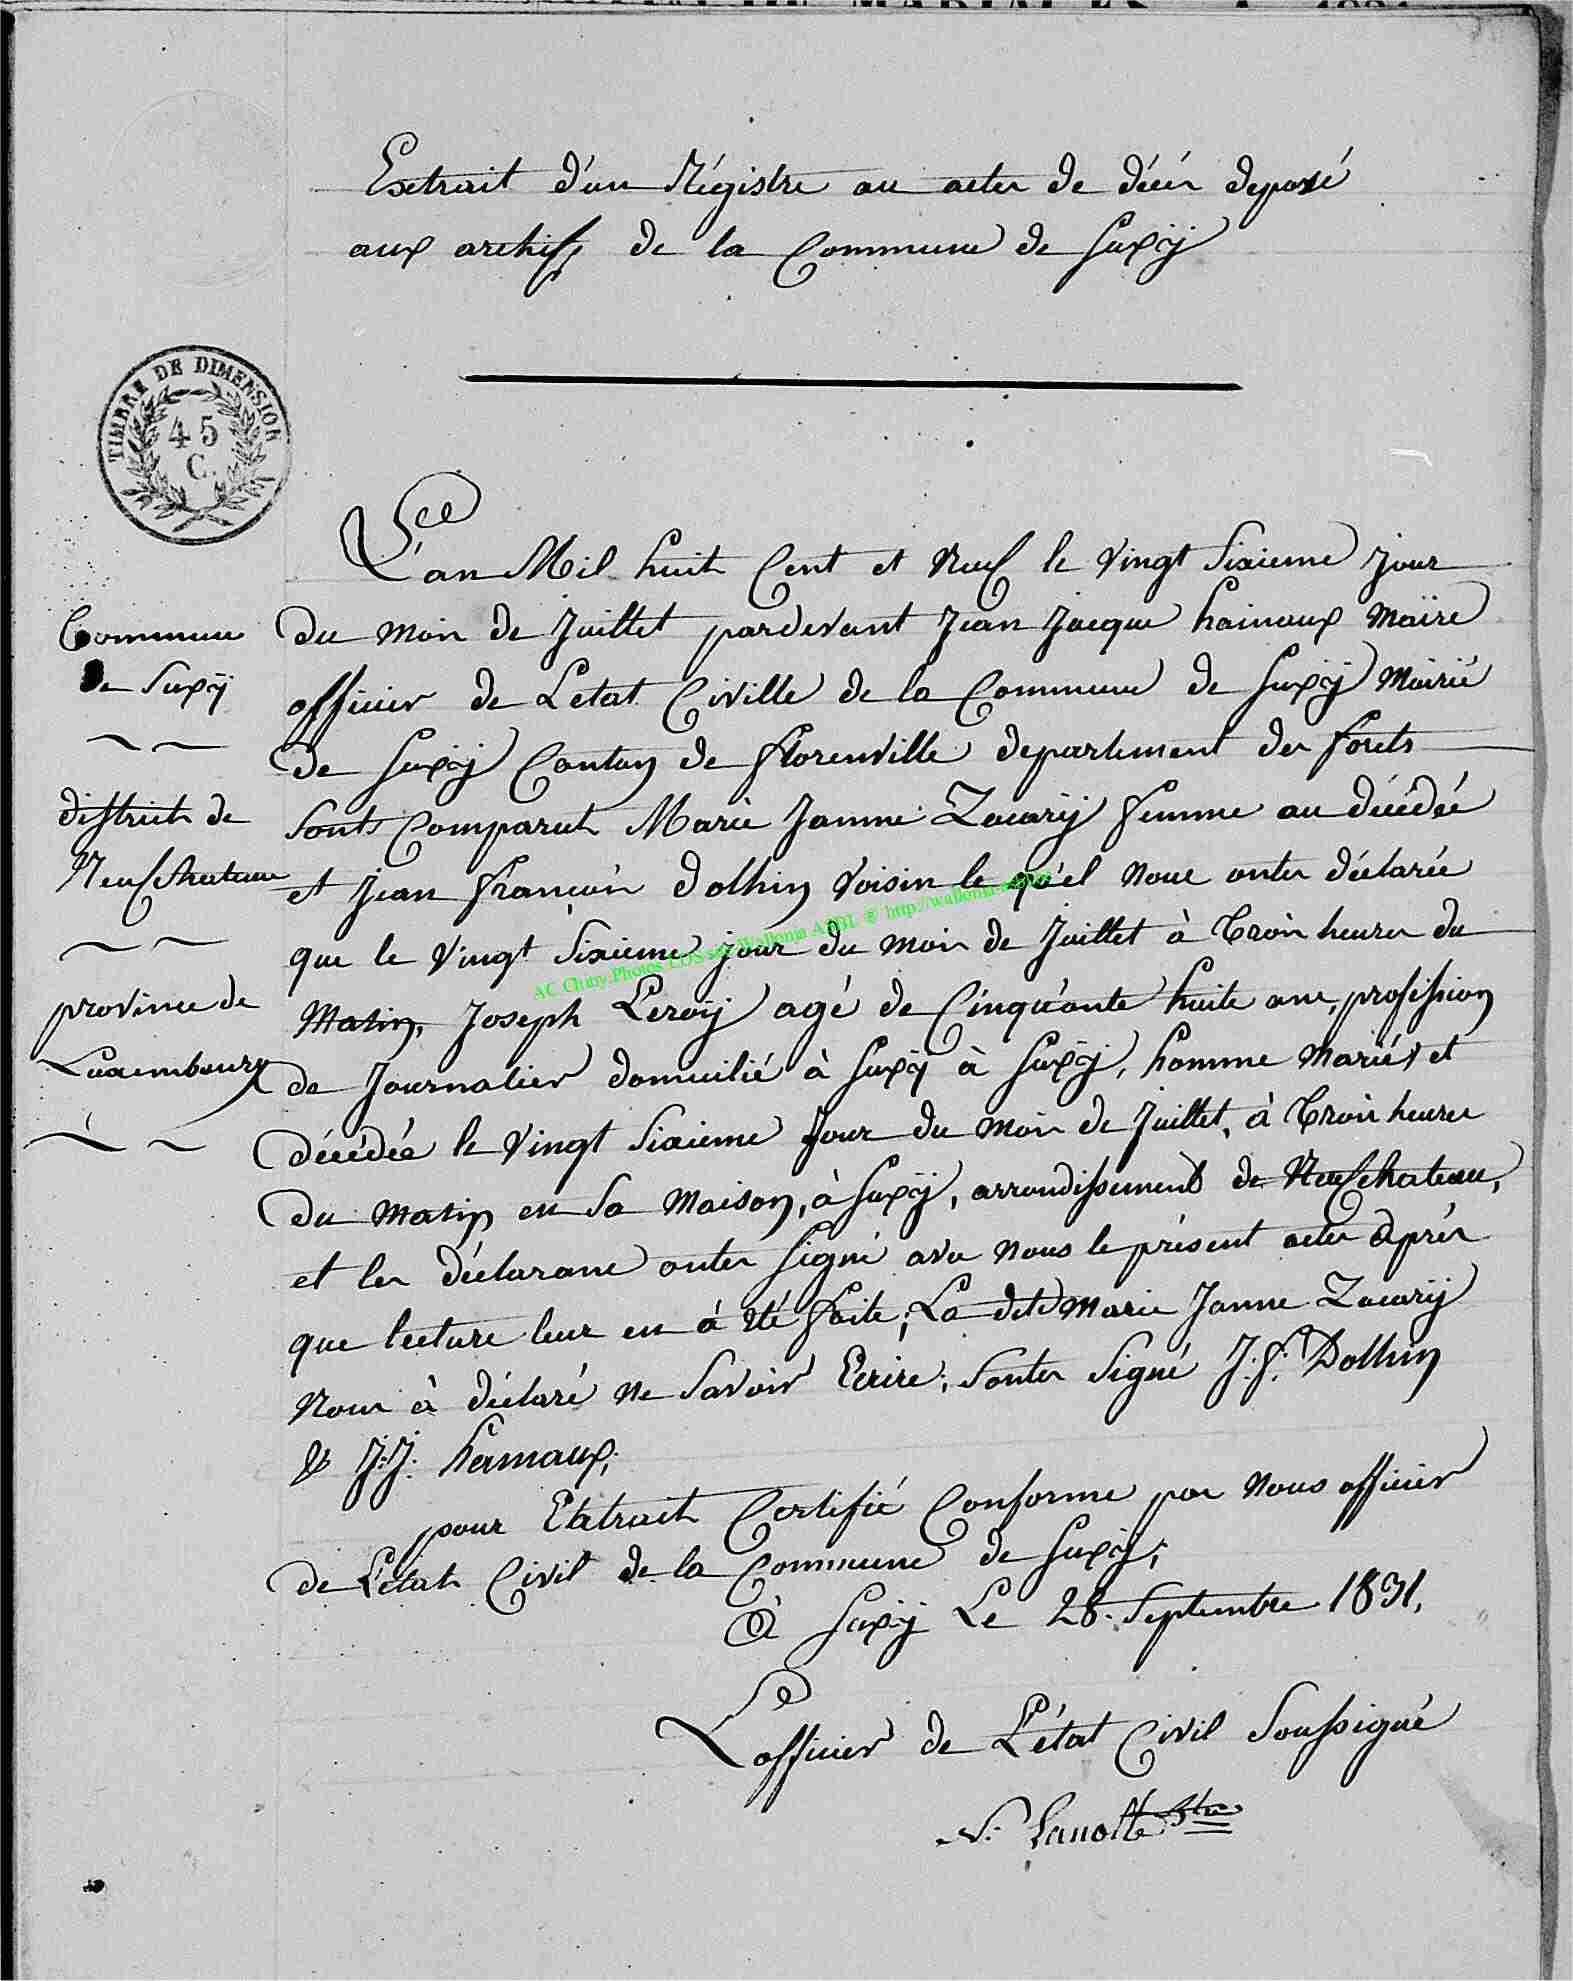 Extrait d'un Régistre au actes de décés deposé
aux archifs de la Commune de Suxÿ
TIMBRE DE DIMENSION
45
C.
L'an Mil huit Cent et Neuf le Vingt Sixieme jour
du mois de Juillet pardevant Jean Jacque hainaux Maïre
officier de L'etat Civille de la Commune de Suxÿ Mairié
de Suxÿ Canton de florenville departement des forets
Sonts Comparut Marie Janne Zacarÿ femme au décédée
et Jean francois dolhin Voisin le qu'el nous ontes déclarée
que le Vingt Sixieme jour du mois de Juillet à trois heures du
Matin, Joseph Leroÿ agé de Cinquante huite ans, profession
de Journalier domicilié à Suxÿ à Suxÿ, homme Mariés et
décédée le Vingt Sixieme Jour du mois de Juillet, à trois heures
du Matin en Sa Maison, à Suxÿ, arrondissement de Neufchateau,
et les déclarans ontes Signé avec nous le présent actes après
que lecture leur en à été faite; La dite Marie Janne Zacarÿ
Nous à déclaré ne Savoir Ecrire, Sontes Signé J. f. Dolhin
& J: J: hainaux;
pour Extrait Certifié Conforme par Nous officier
de L'état Civil de la Commune de Suxÿ;
à Suxÿ Le 28. Septembre 1831,
L'officier de L'état Civil Soussigné
Commune
de Suxÿ
districts de
Neufchateau
province de
Luxembourg
AC Chiny Photos LDS sur Wallonia ASBL @ http://wallonia-asbl.be